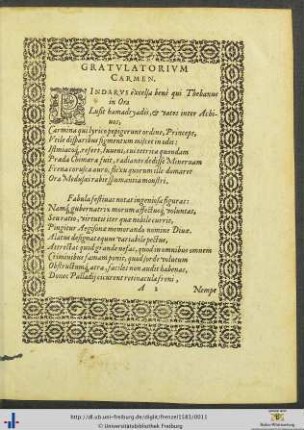 GRATVLATORIVM
CARMEN.
PINDARVS excelsa benè qui Thebanus
in Ora
Lusit hamadryadis, & vates inter Achi-
uos,
Carmina qui lyrico pepigerunt ordine, Princeps,
Vtile disparibus figmentum miscet in odis:
refert, Iuueni, cui terrea quondam
Præda Chimæra fuit, radiante dedisse Mineruam
Frena auro, quorum ille domaret
Ora Medusæi rabie spumantia monstri.
Fabula festiuas notat ingeniosa figuras:
Namq; gubernatrix morum affectusq; voluntas,
Seu ratio, virtutis iter qua nobile currit,
Pingitur Aegisonæ memoranda nomine Diuæ.
designat equus variabile pectus,
Affectus quod grande nefas, quod in omnibus omnem
Criminibus famam ponit, quod sorde volutum
Obstruitur atra, faciles non audit habenas,
Donec Palladij retinacula freni,
A 2
Nempe
http://dl.ub.uni-freiburg.de/diglit/frenze1583/0011
© Universitätsbibliothek Freiburg
Baden-Württemberg